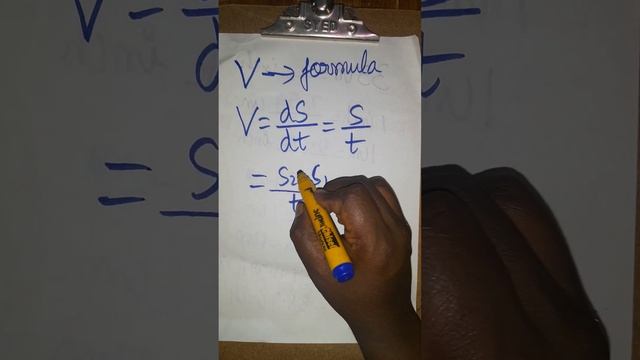 SYED
V → formula
V = dS/dt = S/t
= S₂ S₁
t